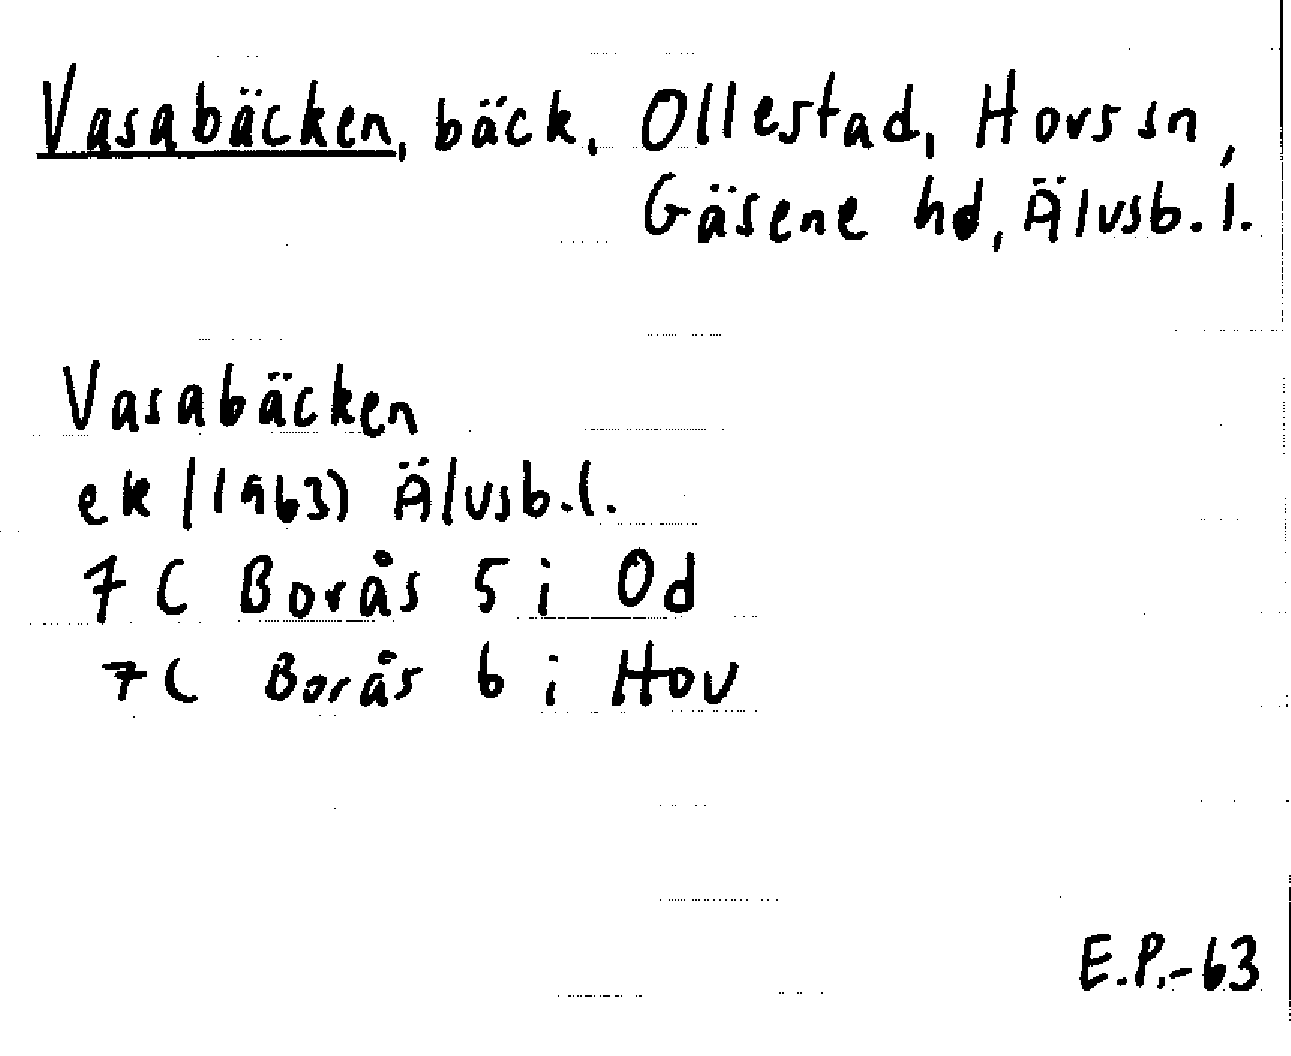 Vasabäcken, bäck, Ollestad, Hovs sn,
Gäsene hd, Älvsb. l.
Vasabäcken
ek (1963) Älvsb. l.
7 C Borås 5 i Od
7 C Borås 6 i Hov
E.P.-63